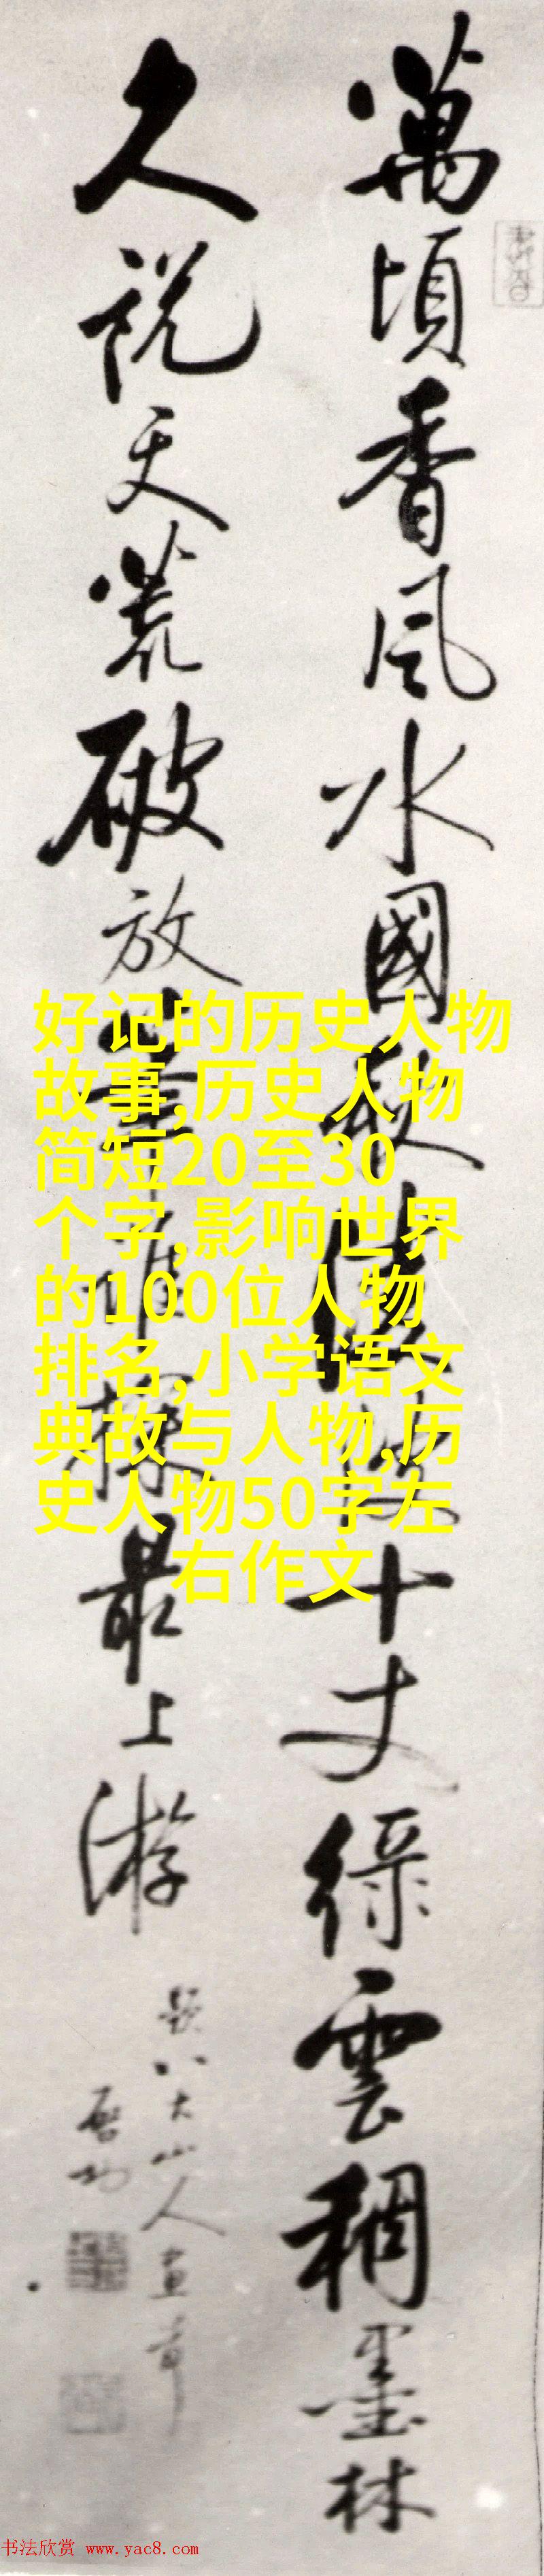 萬頃香風水國秋十丈綠雲稠墨林
久說天荒破放探最上游
題八大山人畫
啟功
好记的历史人物
故事,历史人物
简短20至30
个字,影响世界
的100位人物
排名,小学语文
典故与人物,历
史人物50字左
右作文
书法欣赏 www.yac8.com